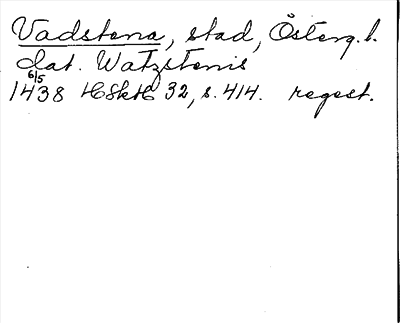 Vadstena, stad, Österg.l.
dat. Watzstenis
6/5
1438 HSkH 32, s. 414. regest.